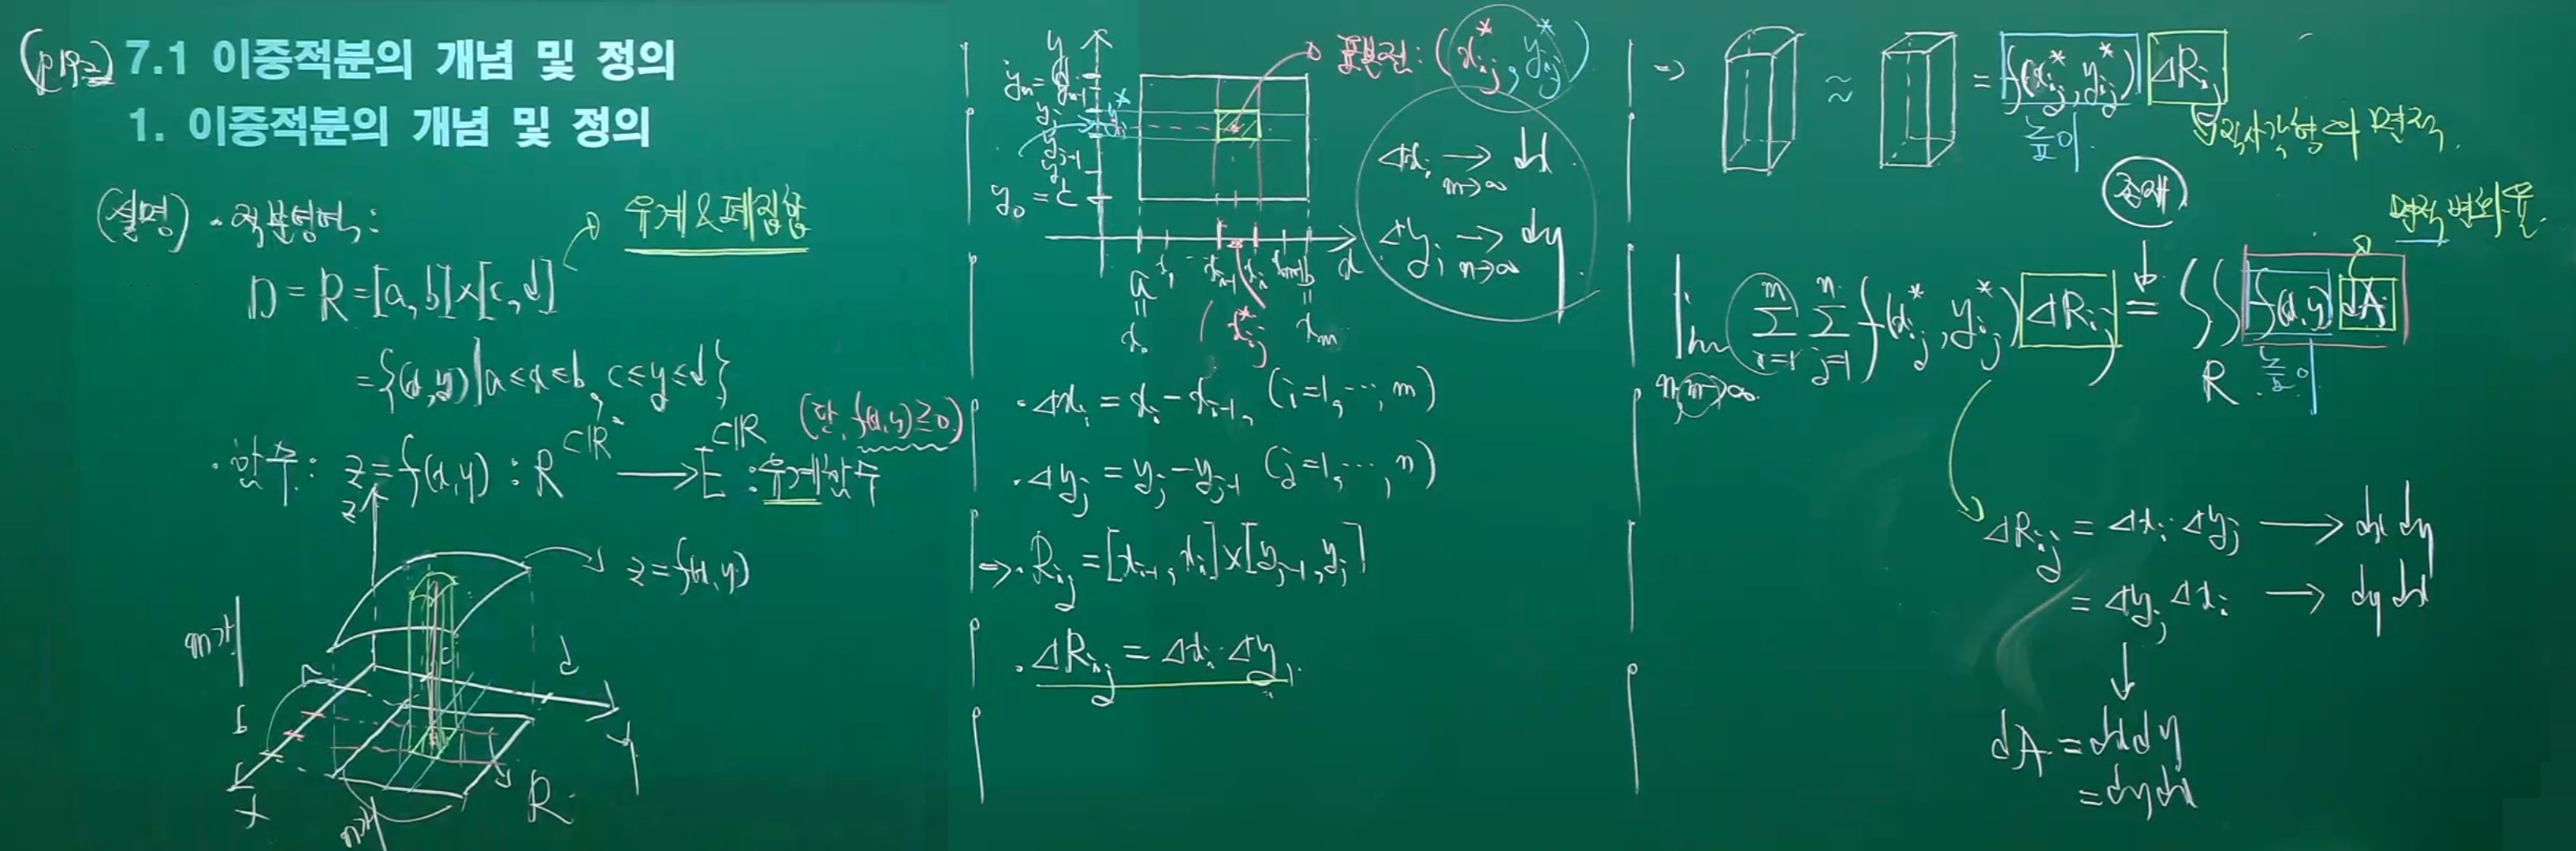 (p192) 7.1 이중적분의 개념 및 정의
1. 이중적분의 개념 및 정의
(설명) · 적분영역:
유계&폐집합
D = R = [a, b]×[c, d]
= {(x, y) | a ≤ x ≤ b, c ≤ y ≤ d}
(단, f(x,y) ≥ 0)
· 함수: z = f(x, y) : R ⊂ℝ² ⟶ E ⊂ℝ : 유계함수
z
z = f(x, y)
m개
d
c
b
y
x
R
n개
y
표본점: (x*ij, y*ij)
yn = d
yn-1
yj
y*ij
yj-1
y1
y0 = c
a x1 ... xi-1 xi xm-1 b x
= =
x0 x*ij xm
Δxi ⟶ dx
m→∞
Δyj ⟶ dy
n→∞
· Δxi = xi − xi-1, (i=1, ⋯, m)
· Δyj = yj − yj-1 (j=1, ⋯, n)
⇒ · Rij = [xi-1, xi]×[yj-1, yj]
· ΔRij = Δxi · Δyj
⇒ ≈ = f(x*ij, y*ij) ΔRij
높이
직사각형의 면적
존재
면적 변화율
lim m,n→∞ Σ i=1 m Σ j=1 n f(x*ij, y*ij) ΔRij = ∬R f(x, y) dA
높이
ΔRij = Δxi · Δyj ⟶ dx dy
= Δyj Δxi ⟶ dy dx
↓
dA = dxdy
= dydx